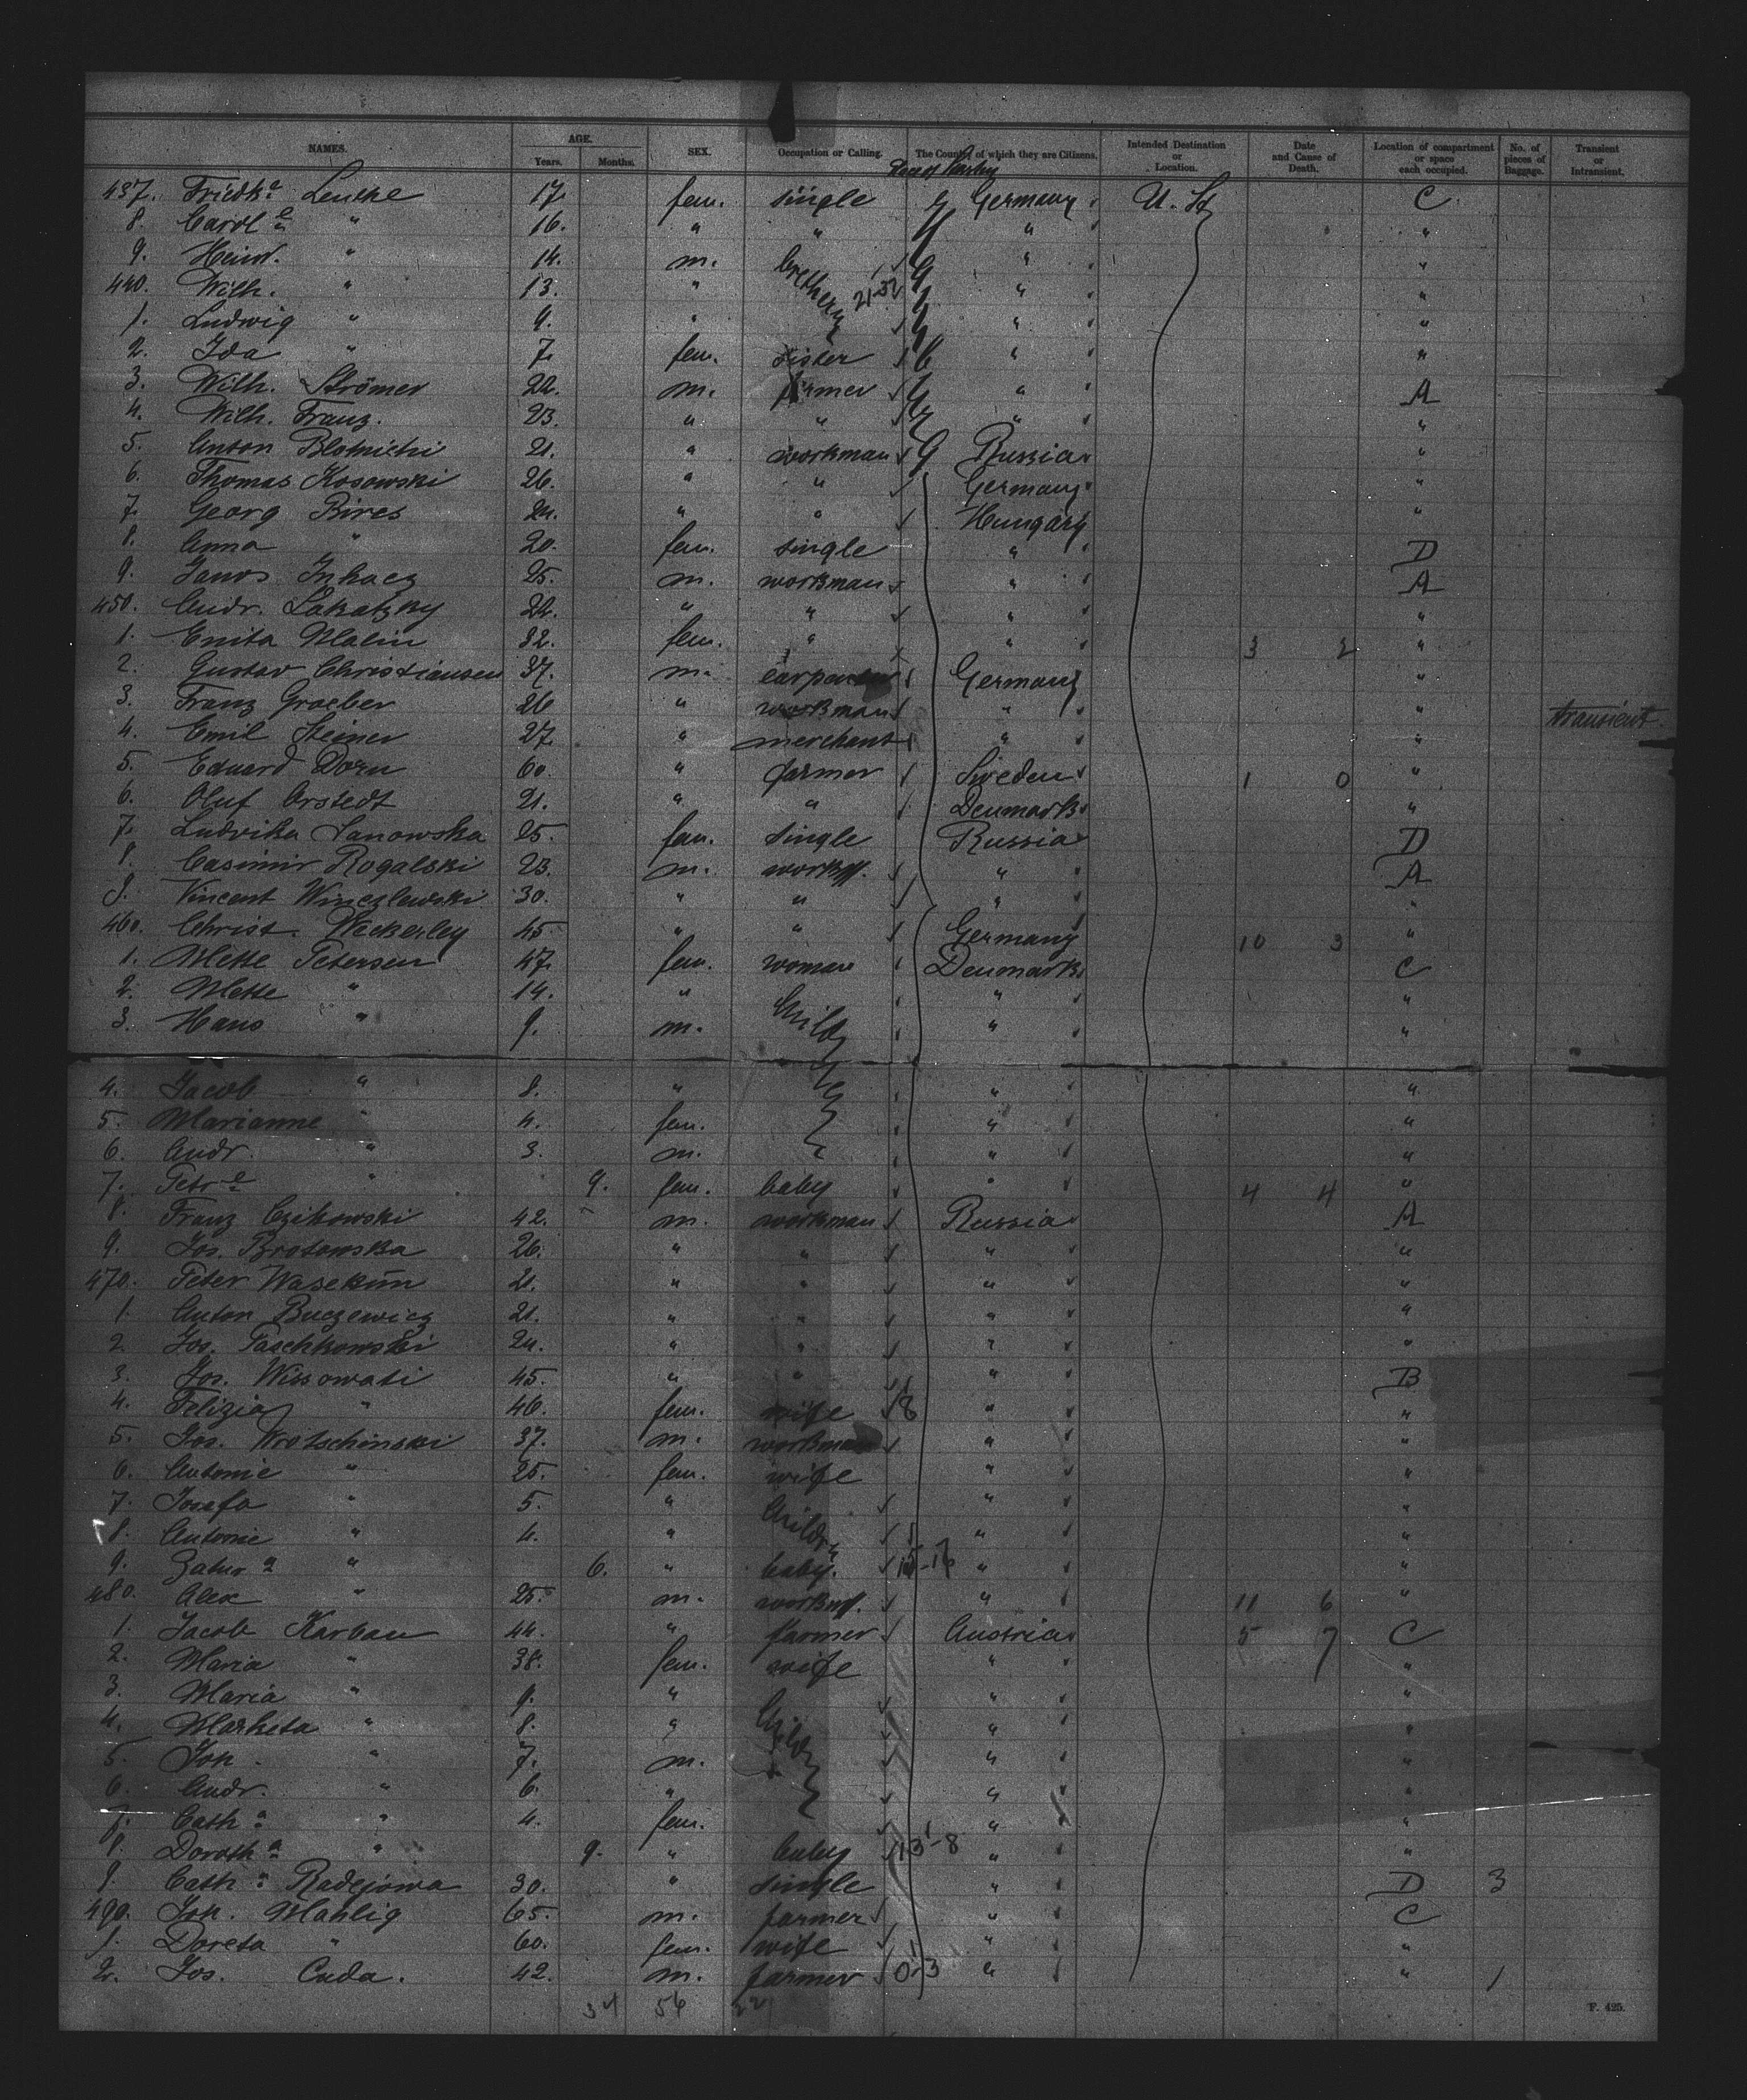 NAMES. AGE. SEX. Occupation or Calling. The Country of which they are Citizens. Intended Destination or Location. Date and Cause of Death. Location of compartment or space each occupied. No. of pieces of Baggage. Transient or Intransient.
Years. Months.
437. Friedk.a 17. fem. single Germany U. St. C
8. Carol.e " 16. " " " "
9. Heinr. " 14. m. brethern " "
440. Wilh. " 13. " 21-32 " "
1. Ludwig " 9. " " "
2. Ida " 7. fem. sister " "
3. Wilh. Strömer 22. m. farmer " A
4. Wilh. Franz. 23. " " " "
5. Anton 21. " workman Russia "
6. Thomas Kosowski 26. " " Germany "
7. Georg Bires 24. " " Hungary "
8. Anna " 20. fem. single " D
9. Janos 25. m. workman " A
450. Andr. Lakatzky 22. " " " "
1. Malin 32. fem. " " 3 2 "
2. Gustav Christiansen 37. m. carpenter Germany "
3. Franz Groeber 26 " workman " " transient.
4. Emil Steiner 27. " merchant " "
5. Eduard Dorn 60. " farmer Sweden 1 0 "
6. Oluf Orstedt 21. " " Denmark "
7. Ludvika Janowska 25. fem. single Russia D
8. Casimir Rogalski 23. m. workm. " A
9. Vincent Winczlewski 30. " " " "
460. Christ. Weckerley 45 " " Germany 10 3 "
1. Mette Petersen 47. fem. woman Denmark C
2. Mette " 14. " Childr. " "
3. Hans " 9. m. " "
4. Jacob " 8. " " "
5. Marianne " 4. fem. " "
6. Andr. " 3. m. " "
7. Petr.e " 9. fem. baby " 4 4 "
8. Franz Czikowski 42. m. workman Russia A
9. Jos. Brotomska 26. " " " "
470. Peter Wasekun 21. " " " "
1. Anton Buczewicz 21. " " " "
2. Jos. Paschkowski 24. " " " "
3. Jos. Wissowati 45. " " " B
4. Felizia " 46. fem. wife 8 " "
5. Jos. Wrotschinski 37. m. workman " "
6. Antonie " 25. fem. wife " "
7. Josefa " 5. " Childr. " "
8. Antonie " 4. " " "
9. " 6. " baby. 15-16 " "
480. Alex " 25. m. workm. " 11 6 "
1. Jacob Karban 44. " farmer Austria 5 7 C
2. Maria " 38. fem. wife " "
3. Maria " 9. " Childr. " "
4. Marketa " 8. " " "
5. Joh. " 7. m. " "
6. Andr. " 6. " " "
7. Cath.a " 4. fem. " "
8. Doroth.a " 9. " baby 13-8 " "
9. Cath.a Radejowa 30. " single " D 3
490. Joh. Mahlig 65. m. farmer " C
1. Doreta " 60. fem. wife " "
2. Jos. Cuda. 42. m. farmer 0-3 " " 1
34 56 22
F. 425.